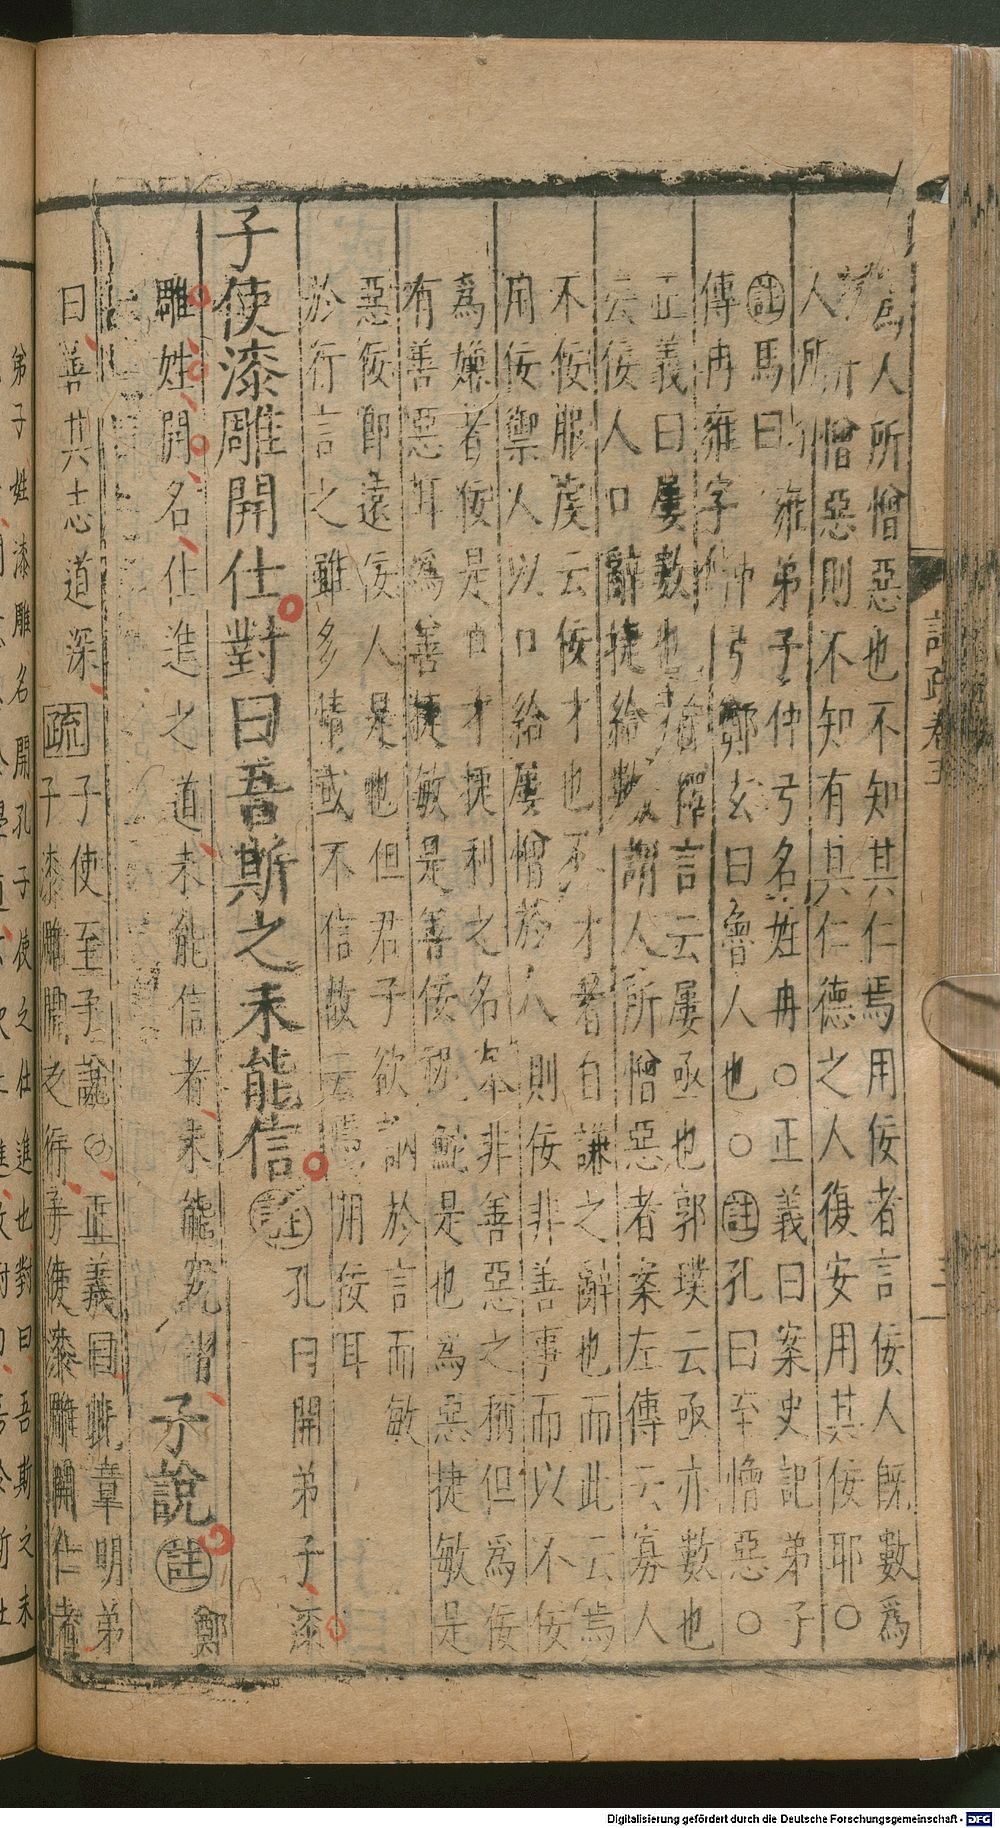 爲人所憎惡也不知其仁焉用佞者言佞人既數爲
人所憎惡則不知有其仁德之人復安用其佞耶〇
註馬曰雍弟子仲弓名姓冉〇正義曰案史記弟子
傳冉雍字仲弓鄭玄曰魯人也〇註孔曰至憎惡〇
正義曰屢數也者釋言云屢亟也郭璞云亟亦數也
云佞人口辭捷給數謂人所憎惡者案左傳云寡人
不佞服虔云佞才也不才者自謙之辭也而此云焉
用佞禦人以口給屢憎於人則佞非善事而以不佞
爲嫌者佞是口才捷利之名本非善惡之稱但爲佞
有善惡耳爲善捷敏是善佞祝鮀是也爲惡捷敏是
惡佞即遠佞人是也但君子欲訥於言而敏
於行言之雖多情或不信故云焉用佞耳
子使漆雕開仕對曰吾斯之未能信註孔曰開弟子漆
雕姓開名仕進之道未能信者未能究習子說註鄭
曰善其志道深疏子使至子說〇正義曰此章明弟
子漆雕開之行子使漆雕開仕者
弟子姓漆雕名開孔子使之仕進也對曰吾斯之未
語疏卷五
Digitalisierung gefördert durch die Deutsche Forschungsgemeinschaft - DFG